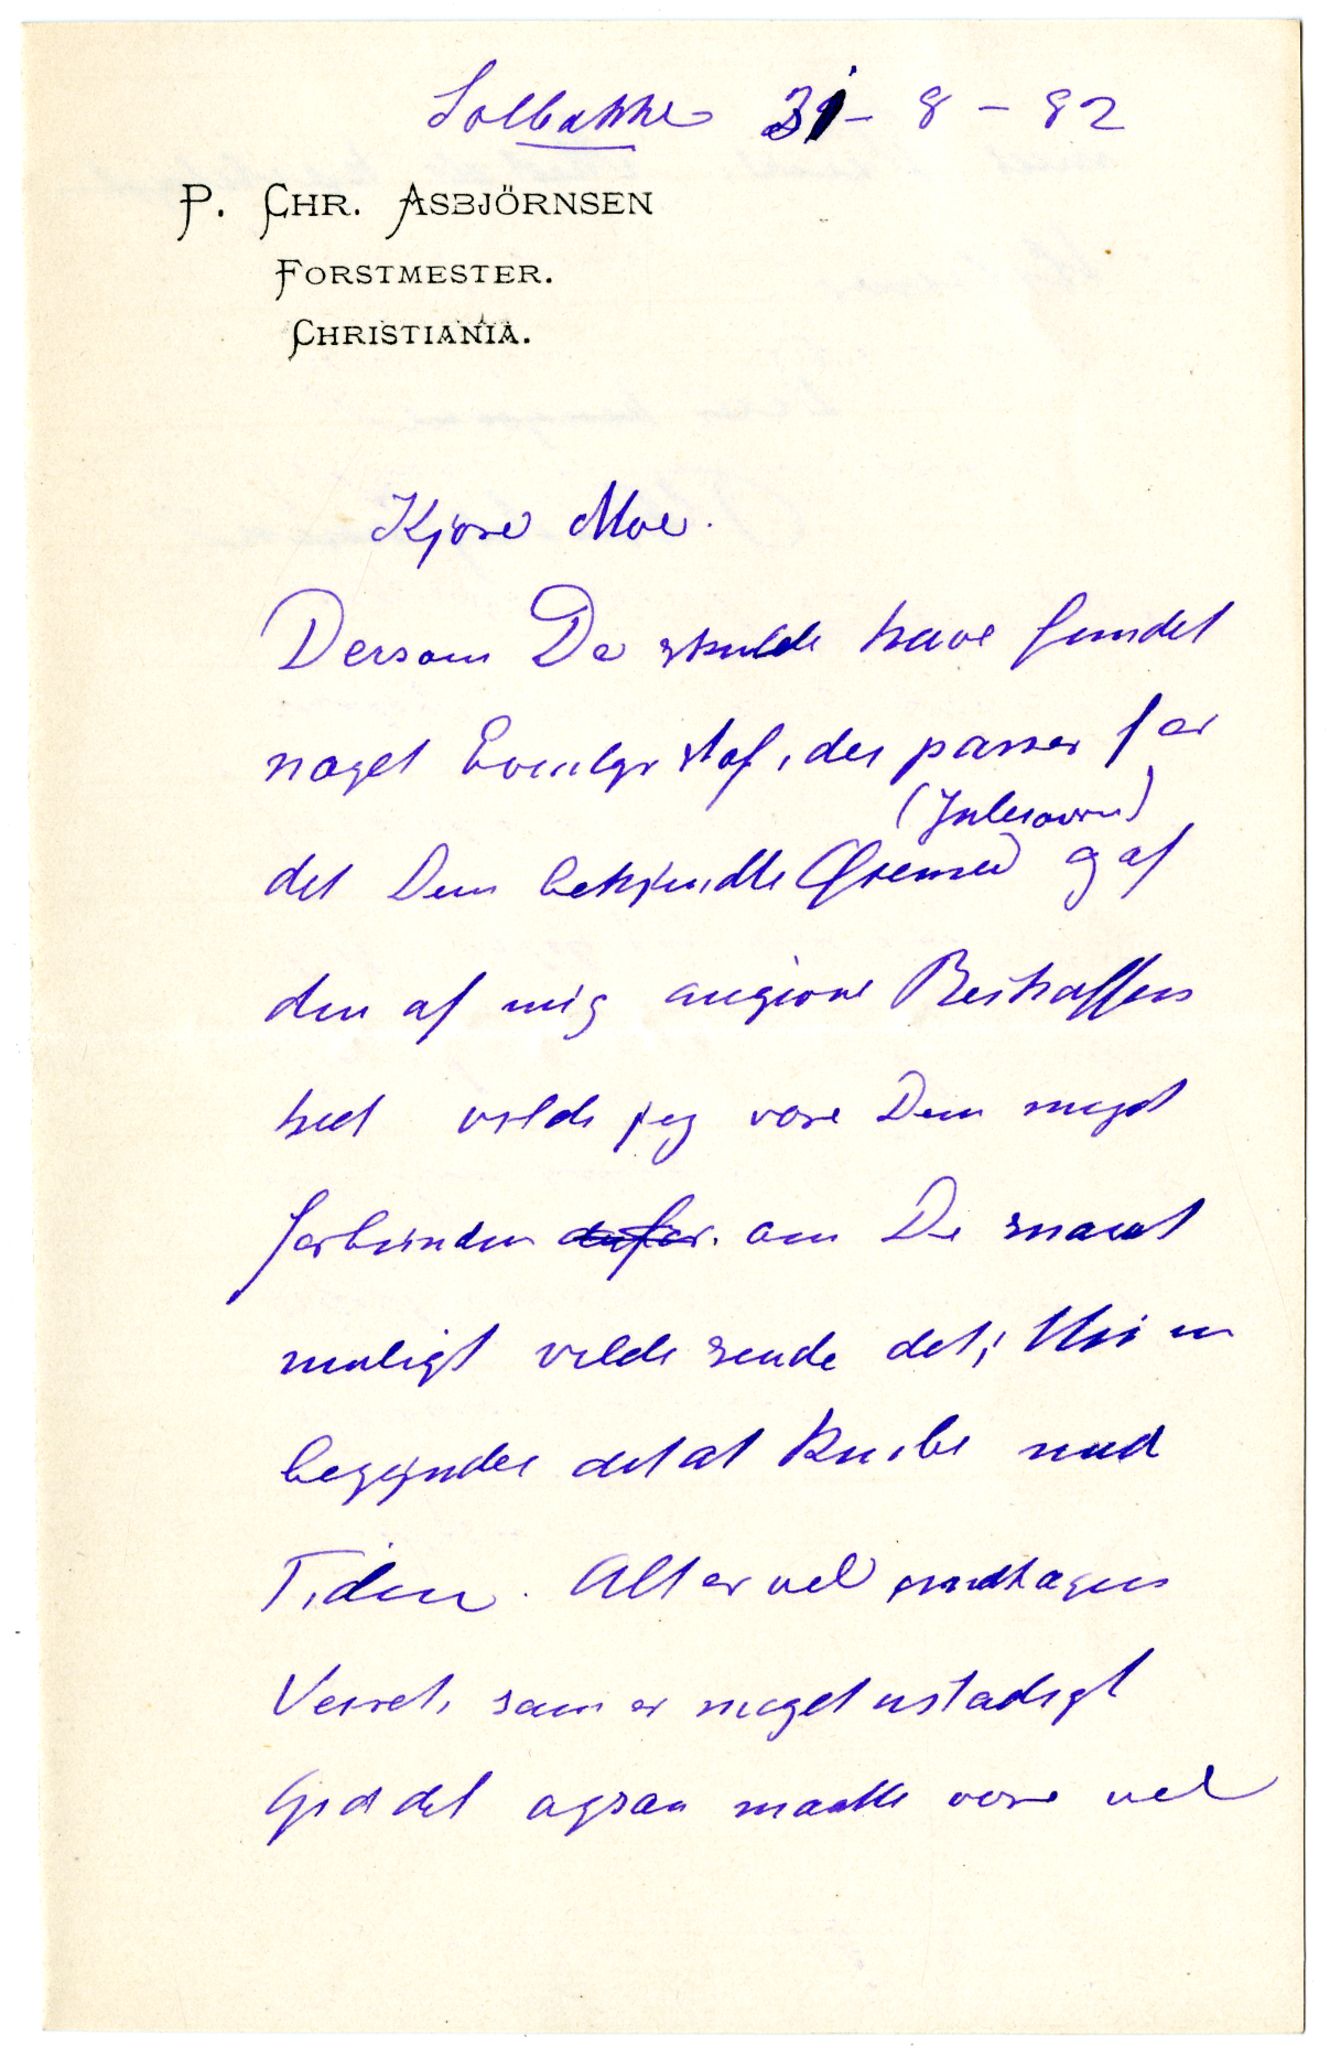 Solbakke 31 - 8 - 82
P. CHR. ASBJÖRNSEN
FORSTMESTER.
CHRISTIANIA.
Kjære Moe.
Dersom De skulde have fundet
noget Eventyrstof, der passer for
(Julesovren)
det Dem bekjendte Øiemed og af
den af mig angivne Beskaffen
hed vilde jeg være Dem meget
forbunden derfor. om De snarest
muligt vilde sende det; thi nu
begynder det at knibe med
Tiden. Alt er vel undtagen
Veiret, som er meget ustadigt
Gid det ogsaa maatte være vel